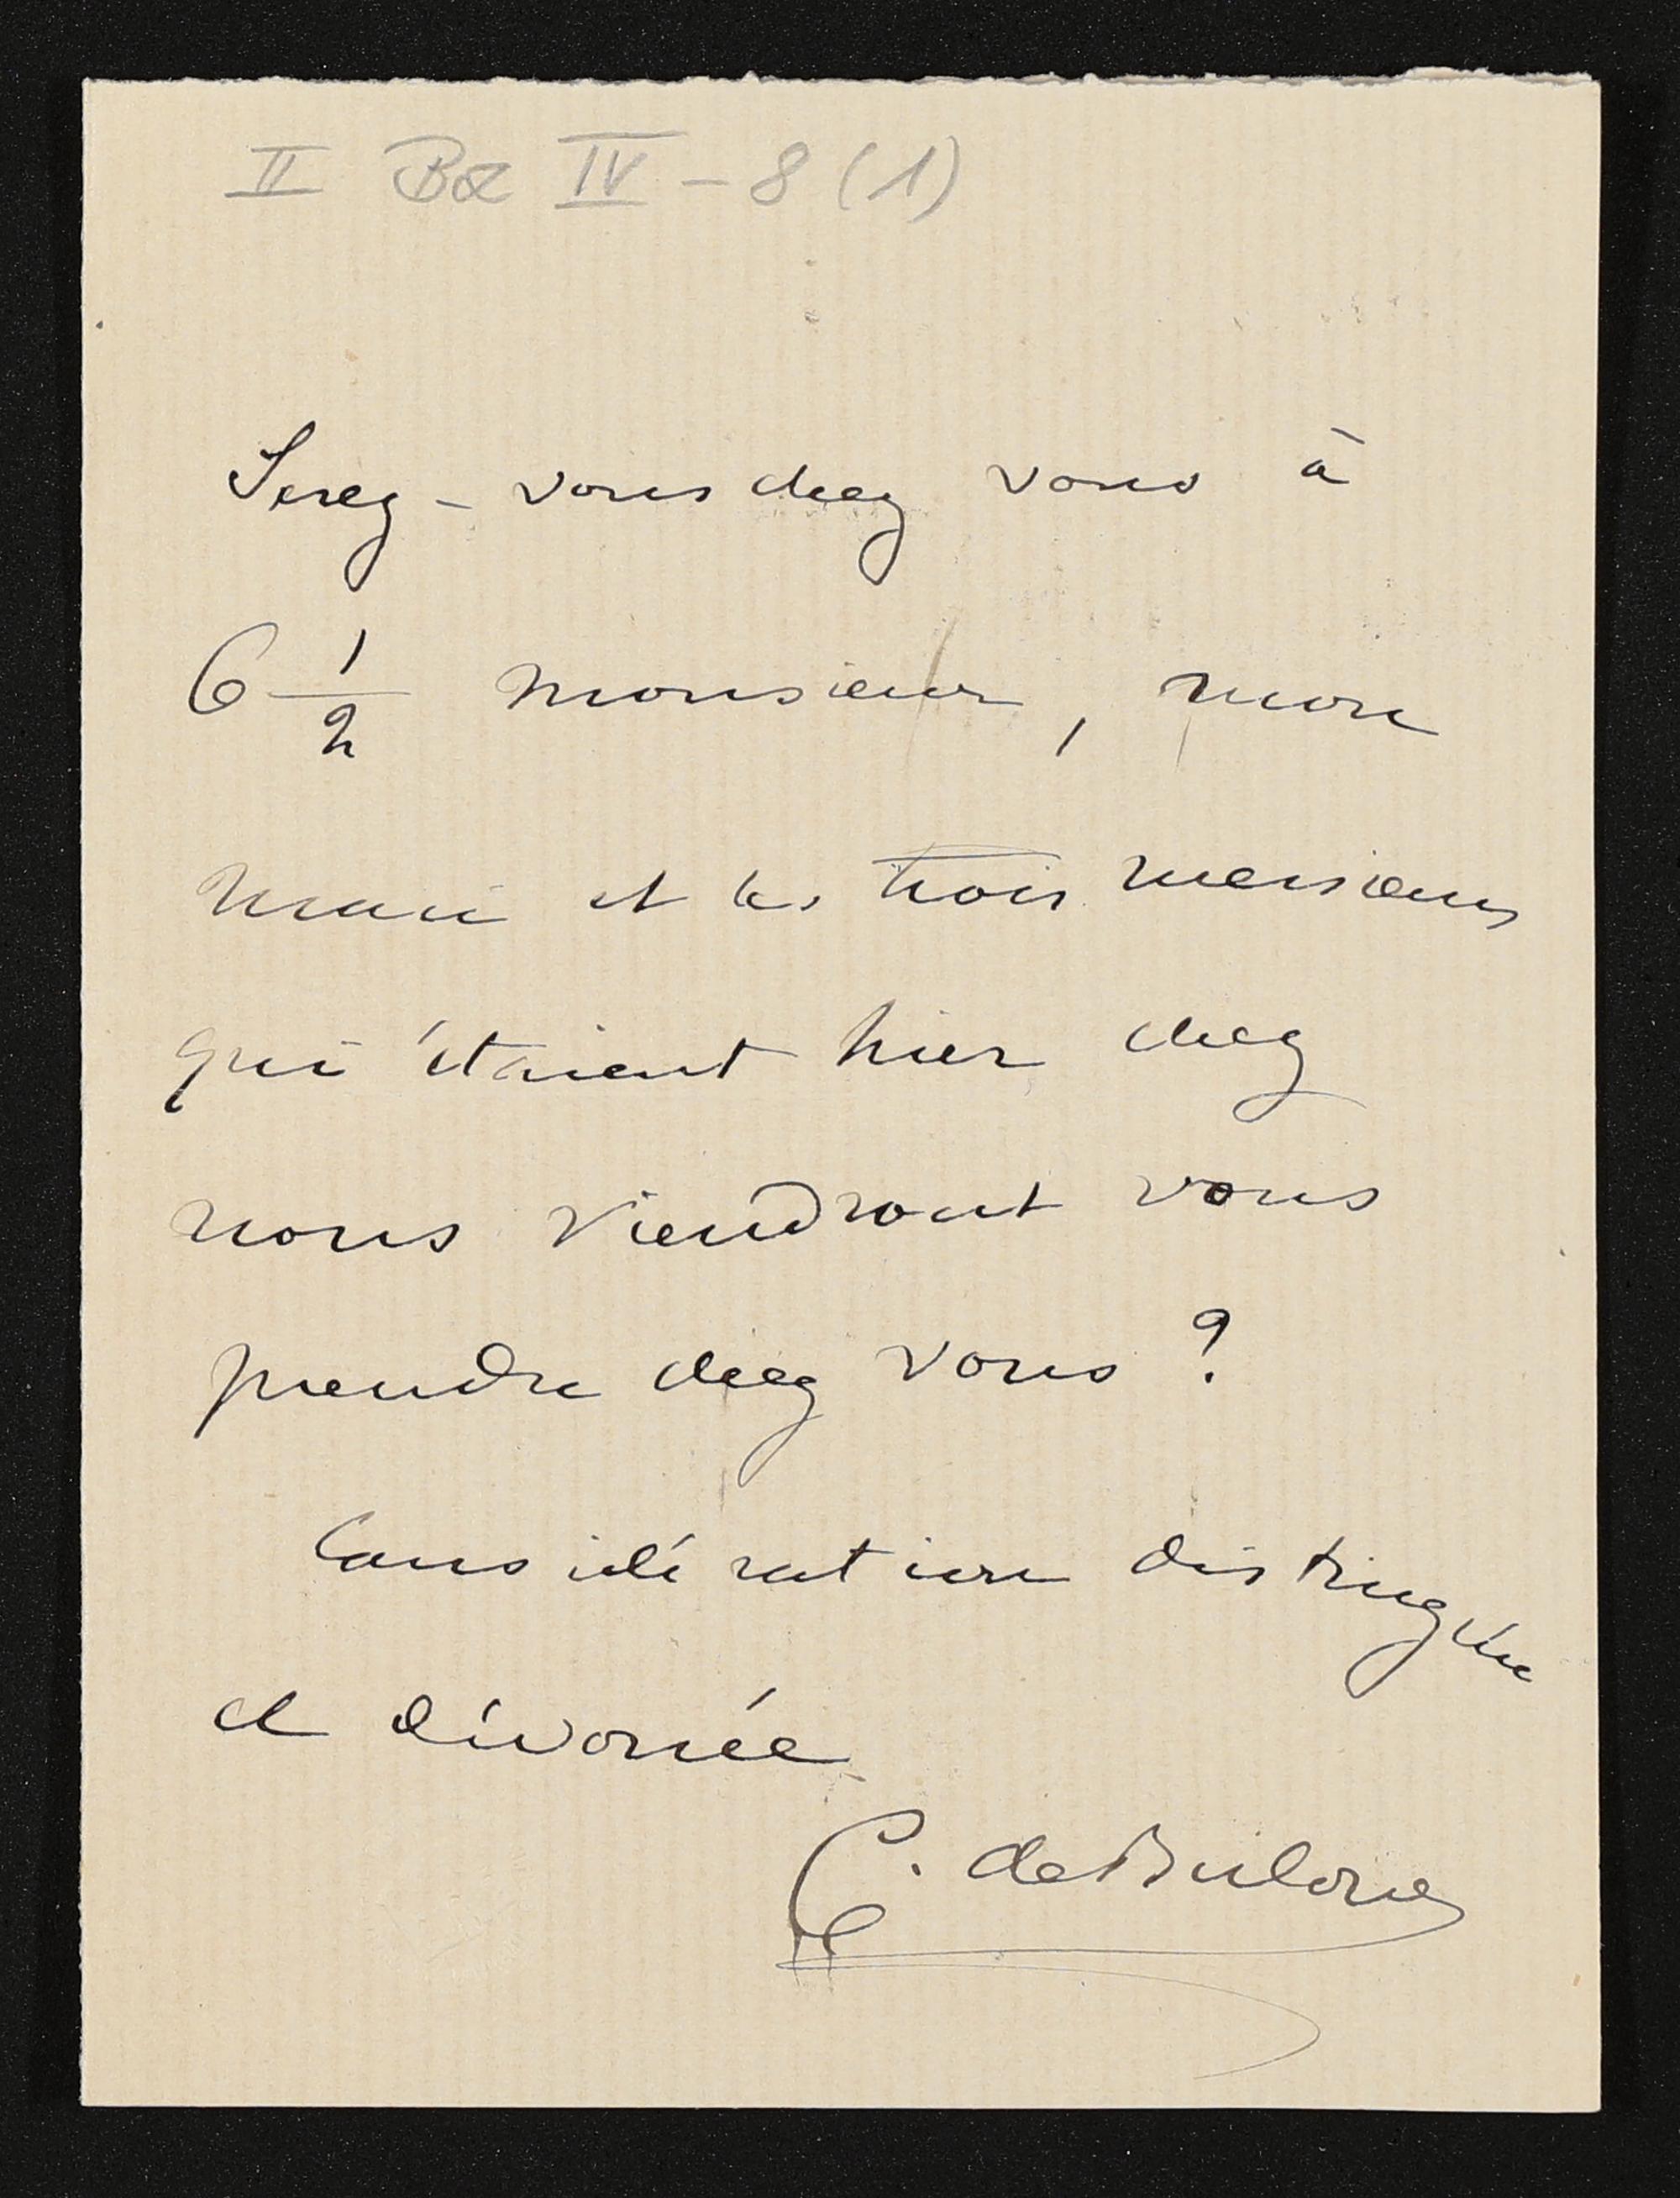 II Bz IV - 8 (1)
Serez - vous chez vous à
6 1/2 monsieur, mon
mari et les trois messieurs
qui étaient hier chez
nous viendront vous
prendre chez vous ?
Considération distinguée
et dévouée
C. de Bulow